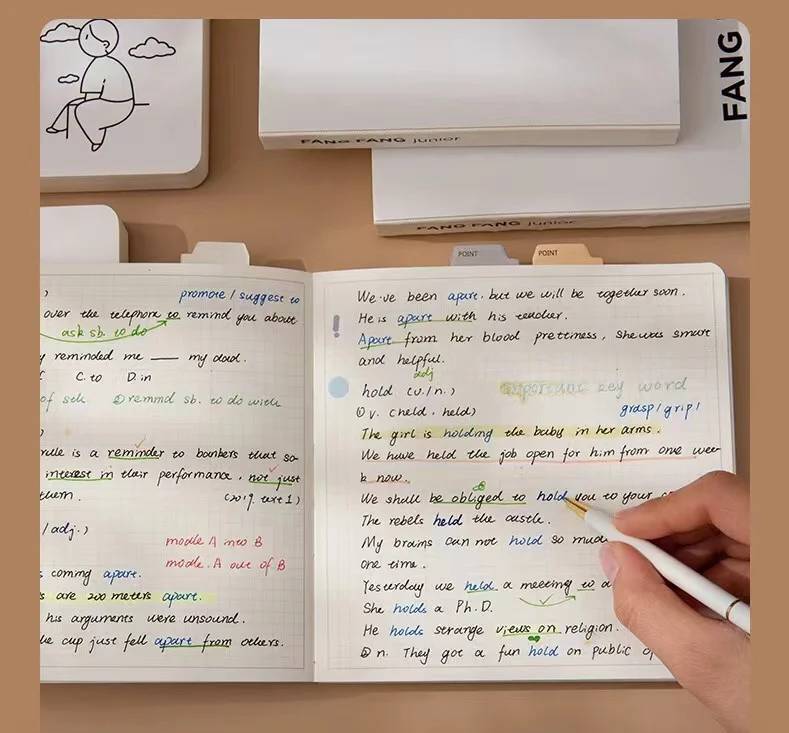 FANG FANG junior
FANG
FANG FANG junior
POINT
POINT
promote / suggest to
over the telephone to remind you about
ask sb. to do
reminded me ___ my dad.
C. to D. in
of sth. ② remind sb. to do with
rule is a reminder to bankers that so
interest in their performance, not just
them.
/ adj.)
modle A into B
modle. A out of B
coming apart.
are 200 meters apart.
his arguments were unsound.
cup just fell apart from others.
We've been apart. but we will be together soon.
He is apart with his teacher.
Apart from her blood prettiness, she was smart
and helpful.
adj
hold (v./n.) important key word
① v. (held, held) grasp / grip /
The girl is holding the baby in her arms.
We have held the job open for him from one wee
k now.
We shall be obliged to hold you to your
The rebels held the castle.
My brains can not hold so much
one time.
Yesterday we held a meeting to
She holds a Ph.D.
He holds strange views on religion.
② n. They got a fun hold on public